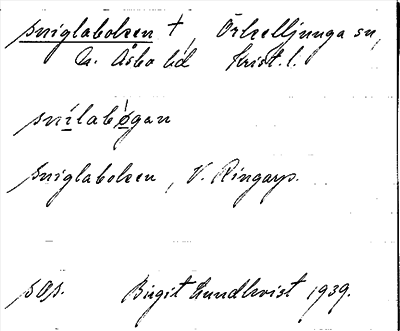 sniglaboken †, Örkelljunga sn,
N. Åsbo hd Krist. l.
snílabògan
sniglaboken, V. Ringarp.
sOp. Birgit Lundkvist 1939.